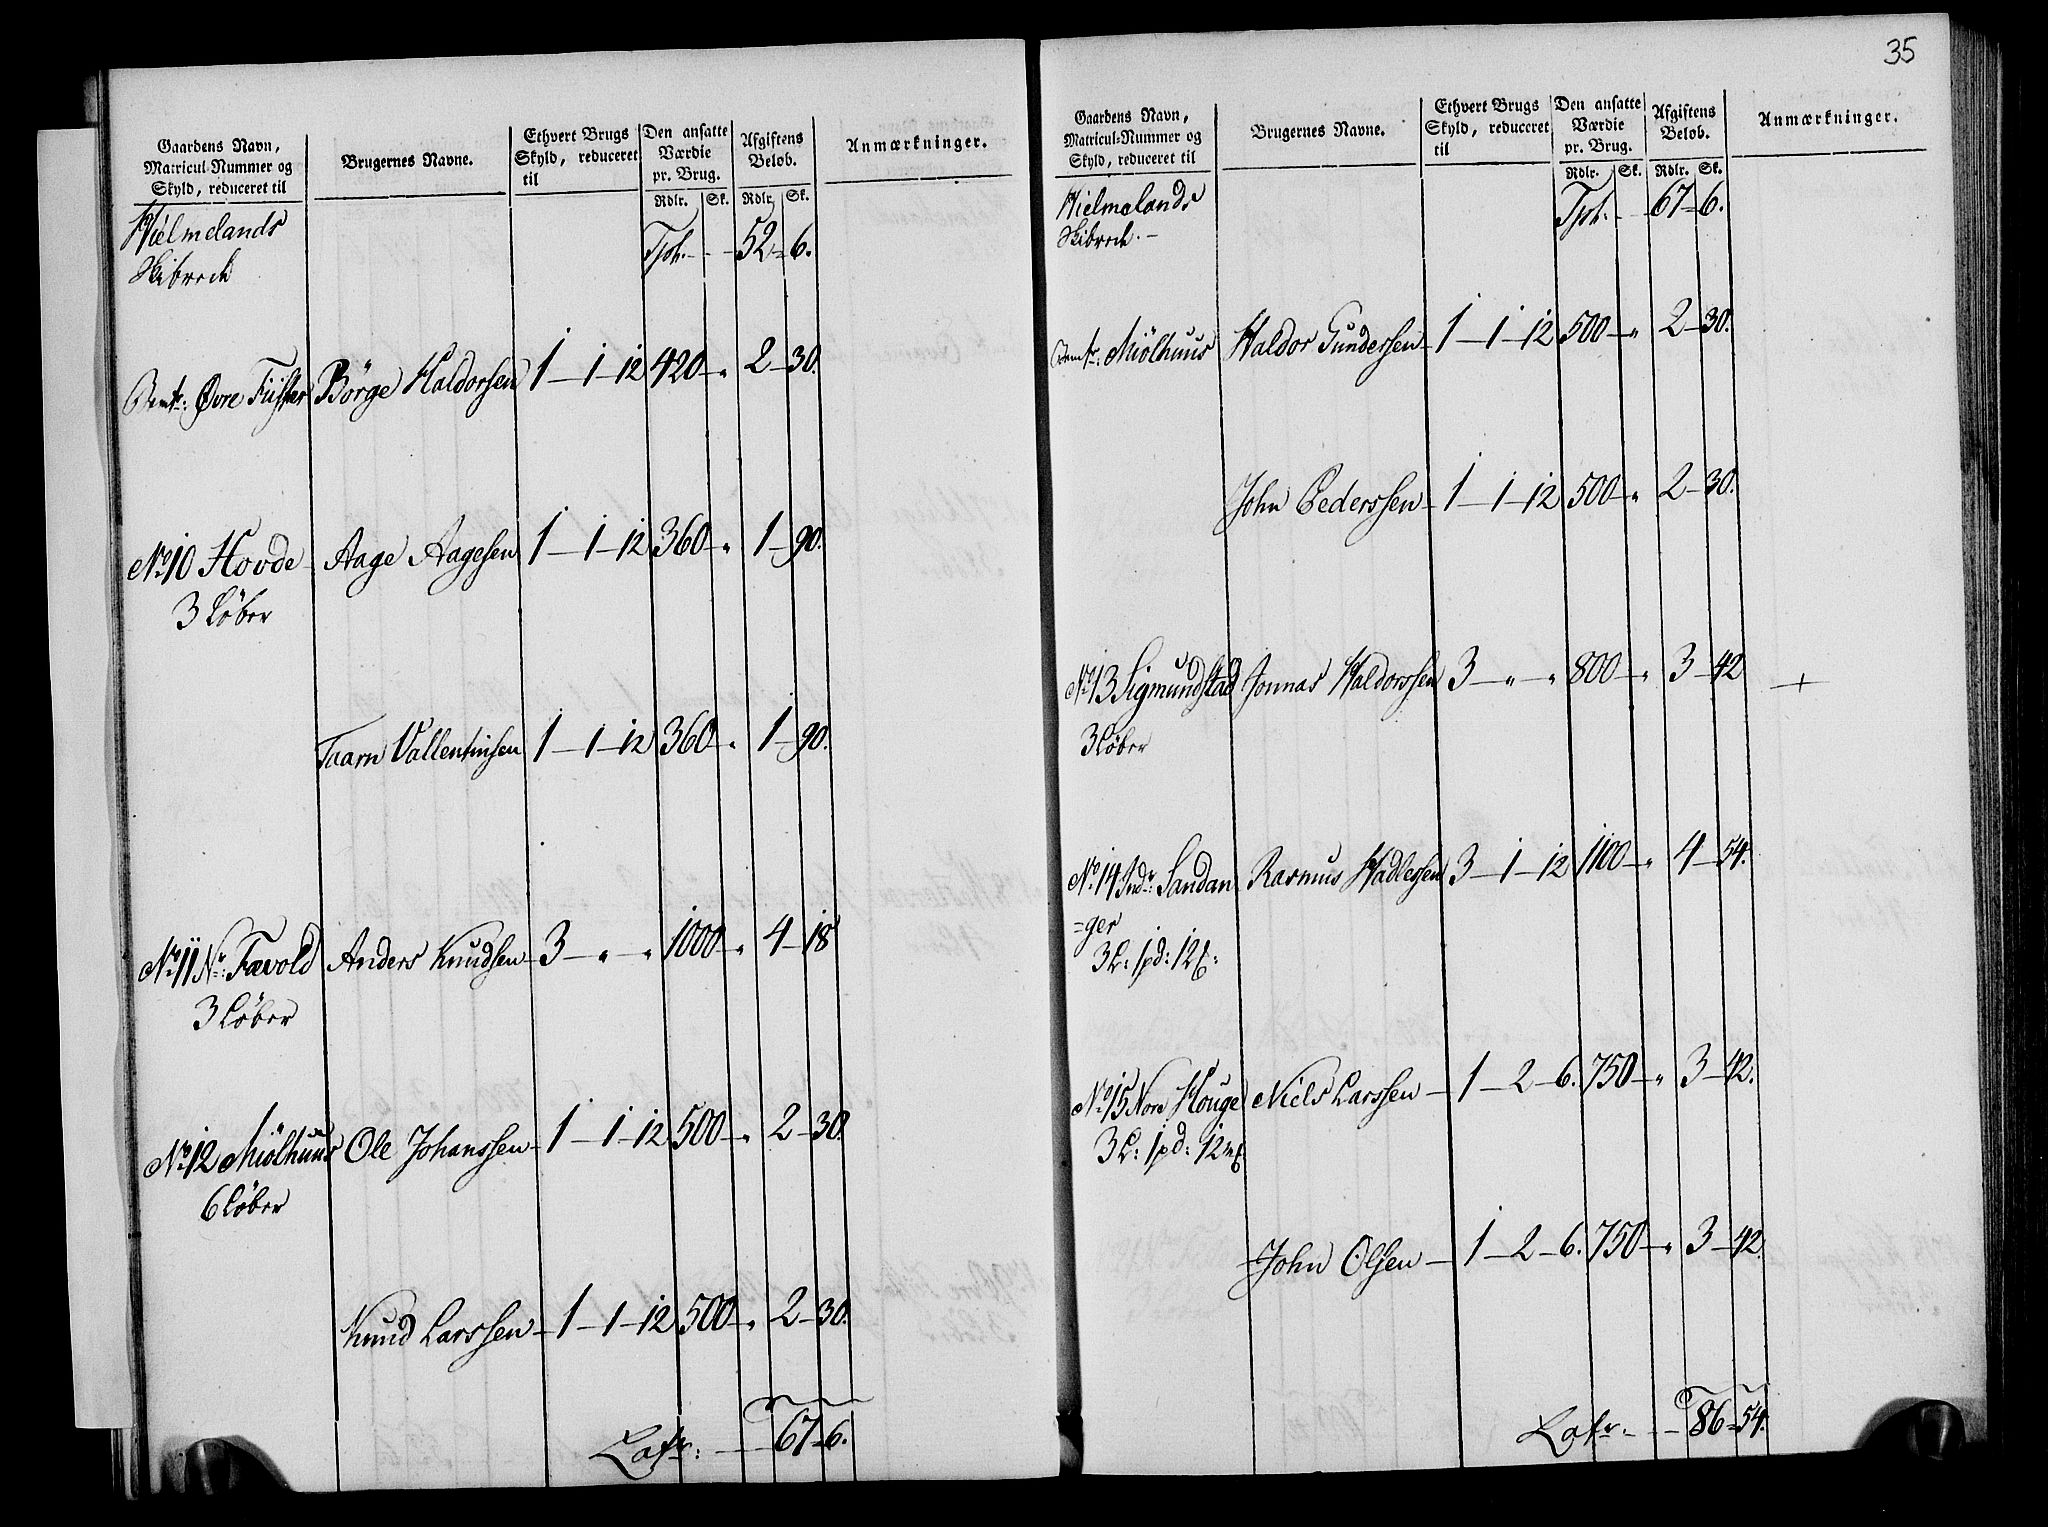 Gaardens Navn,
Matricul-Nummer og
Skyld, reduceret til
Brugernes Navne.
Ethvert Brugs
Skyld, reduceret
til
Den ansatte
Værdie
pr. Brug.
Rdlr. Sk.
Afgiftens
Beløb.
Rdlr. Sk.
Anmærkninger.
Hielmelands Tpt. - - 52 = 6.
Skibrede
Øvre Fiister Börge Haldorsen 1 - 1 - 12 420 - „ 2 - 30.
No. 10 Hovde Aage Aagesen 1 - 1 - 12 360 - „ 1 - 90.
3 Löber
Taarn Vallentinsen 1 - 1 - 12 360 - „ 1 - 90.
No. 11 Nr. Fævold Anders Knudsen 3 - „ - „ 1000 - „ 4 - 18
3 Löber
No. 12 Miölhuus Ole Johanssen 1 - 1 - 12 500 - „ 2 - 30.
6 Löber
Knud Larssen 1 - 1 - 12 500 - „ 2 - 30.
Latr: - 67 = 6.
35
Gaardens Navn,
Matricul-Nummer og
Skyld, reduceret til
Brugernes Navne.
Ethvert Brugs
Skyld, reduceret
til
Den ansatte
Værdie
pr. Brug.
Rdlr. Sk.
Afgiftens
Beløb.
Rdlr. Sk.
Anmærkninger.
Hielmelands Tpt. - 67 = 6.
Skibrede. -
Miölhuus Haldor Gunderssen 1 - 1 - 12 500 - „ 2 - 30.
John Pederssen 1 - 1 - 12 500 - „ 2 - 30.
No. 13 Sigmundstad Jonnas Haldorssen 3 - „ - „ 800 - „ 3 - 42 +
3 Löber
No. 14 Indr. Sandan Rasmus Hadlesen 3 - 1 - 12 1100 - „ 4 - 54.
=ger
3 L: 1 pd: 12 ℔:
No. 15 Nore Houge Niels Larssen - 1 - 2 - 6. 750 - „ 3 - 42.
3 L: 1 pd: 12 m℔
John Olsen - 1 - 2 - 6. 750 - „ 3 - 42.
Latr. - - 86 = 54.